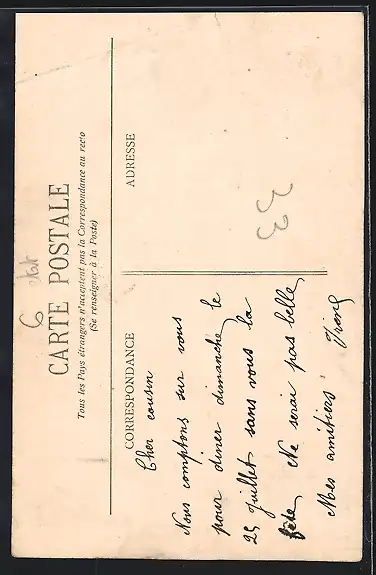 6
CARTE POSTALE
Tous les Pays étrangers n'acceptent pas la Correspondance au recto
(Se renseigner à la Poste)
CORRESPONDANCE
ADRESSE
Cher cousin
Nous comptons sur vous
pour diner dimanche le
25 juillet sans vous la
fête Ne serai pas belle
Mes amitiés